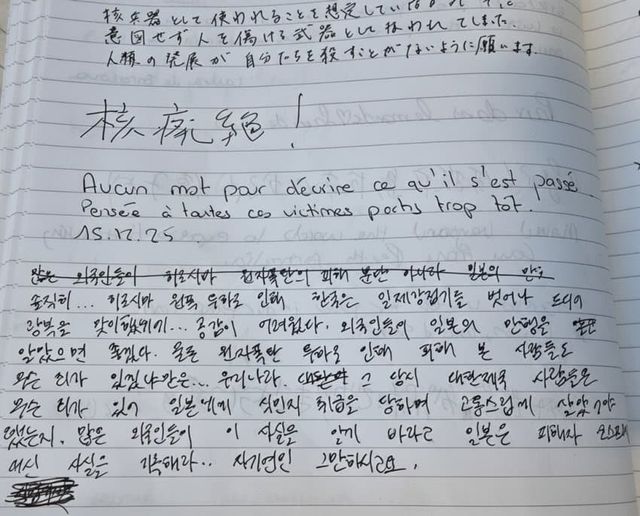 核兵器として使われることを想定していな
意図せず人を傷ける武器として扱われてしまった。
人類の発展が自分たちを殺すことがないように願います。
核廃絶！
Aucun mot pour décrire ce qu'il s'est passé.
Pensée à toutes ces victimes partis trop tôt.
15.12.25
많은 외국인들이 히로시마 원자폭탄의 피해 뿐만 아니라 일본의 만
솔직히... 히로시마 원폭 투하로 인해 한국은 일제강점기를 벗어나 드디어
광복을 맞이했었기... 공감이 어려웠다. 외국인들이 일본의 만행을
알았으면 좋겠다. 물론 원자폭탄 투하로 인해 피해 본 사람들도
무슨 죄가 있겠냐만은... 우리나라. 그 당시 대한제국 사람들은
무슨 죄가 있어 일본에게 식민지 취급을 당하며 고통스럽게 살았어야
했는지. 많은 외국인들이 이 사실을 알게 바라고 일본은 피해자 코스프레
대신 사실을 기록해라.. 자기연민 그만하시고요.